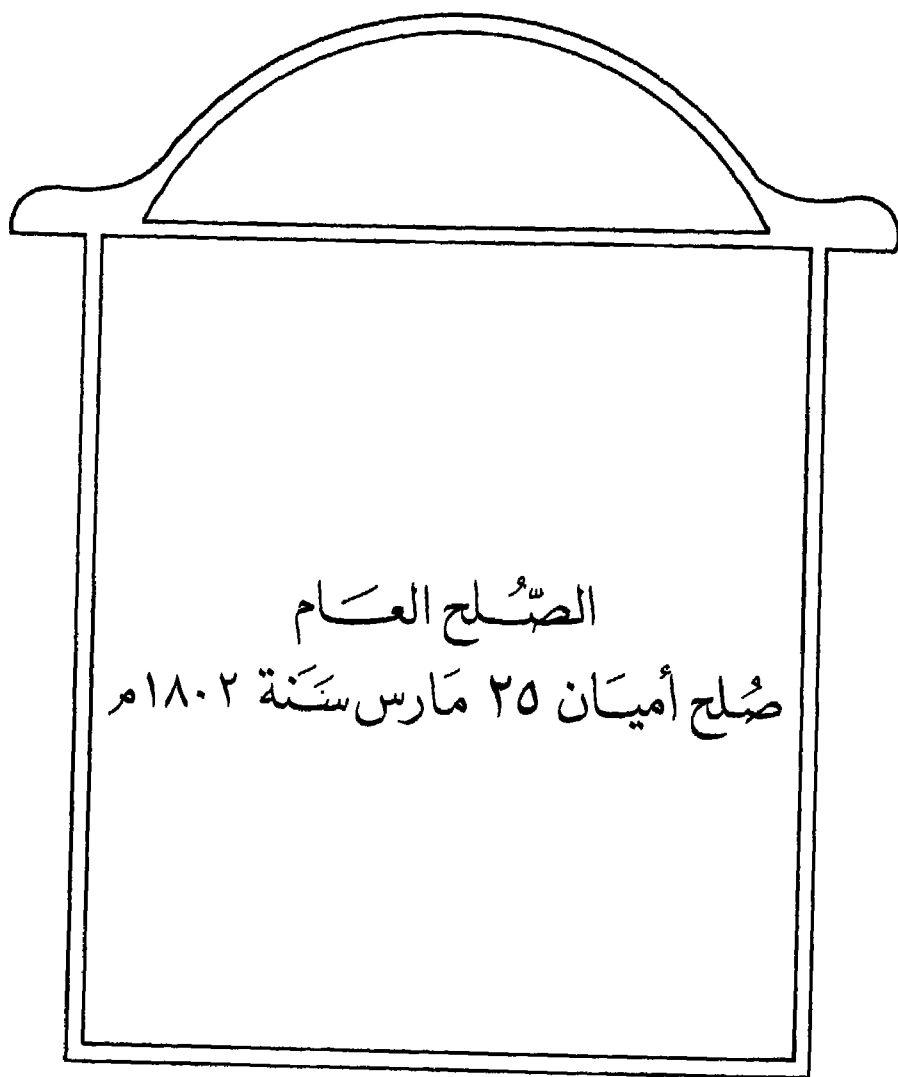 الصُّلح العَام
صُلح أميَان ٢٥ مَارس سَنَة ١٨٠٢م